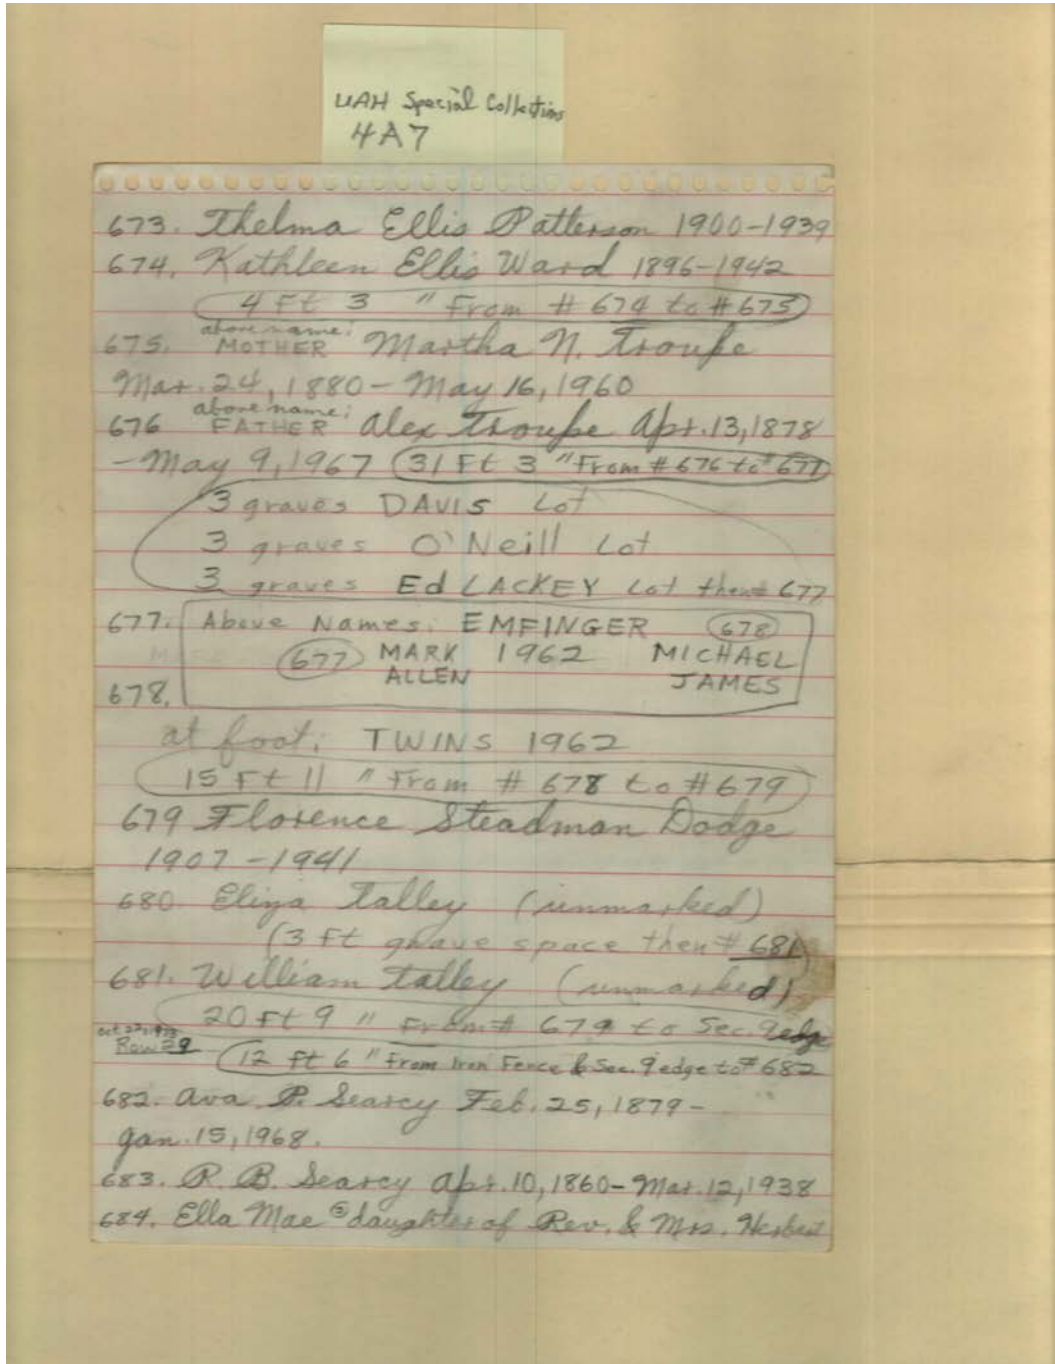 UAH Special Collections
4A7
673. Thelma Ellis Patterson 1900-1939
674. Kathleen Ellis Ward 1896-1942
4 Ft 3 " From # 674 to # 675
above name:
675. MOTHER Martha N. Troupe
Mar. 24, 1880 - May 16, 1960
above name:
676 FATHER Alex Troupe Apr. 13, 1878
- May 9, 1967 (31 Ft 3 " From # 676 to # 677)
3 graves DAVIS Lot
3 graves O'Neill Lot
3 graves Ed LACKEY Lot then # 677
677. Above Names: EMFINGER 678
677 MARK 1962 MICHAEL
ALLEN JAMES
678.
at foot: TWINS 1962
15 Ft 11 " From # 678 to # 679
679 Florence Steadman Dodge
1907 - 1941
680. Eliza Talley (unmarked)
(3 Ft grave space then # 681)
681. William Talley (unmarked)
20 Ft 9 " From # 679 to Sec. 9 edge
Row 29
12 ft 6 " From Iron Fence & Sec. 9 edge to # 682
682. Ava P. Searcy Feb. 25, 1879 -
Jan. 15, 1968.
683. R. B. Searcy Apr. 10, 1860 - Mar. 12, 1938
684. Ella Mae daughter of Rev. & Mrs. Herbert